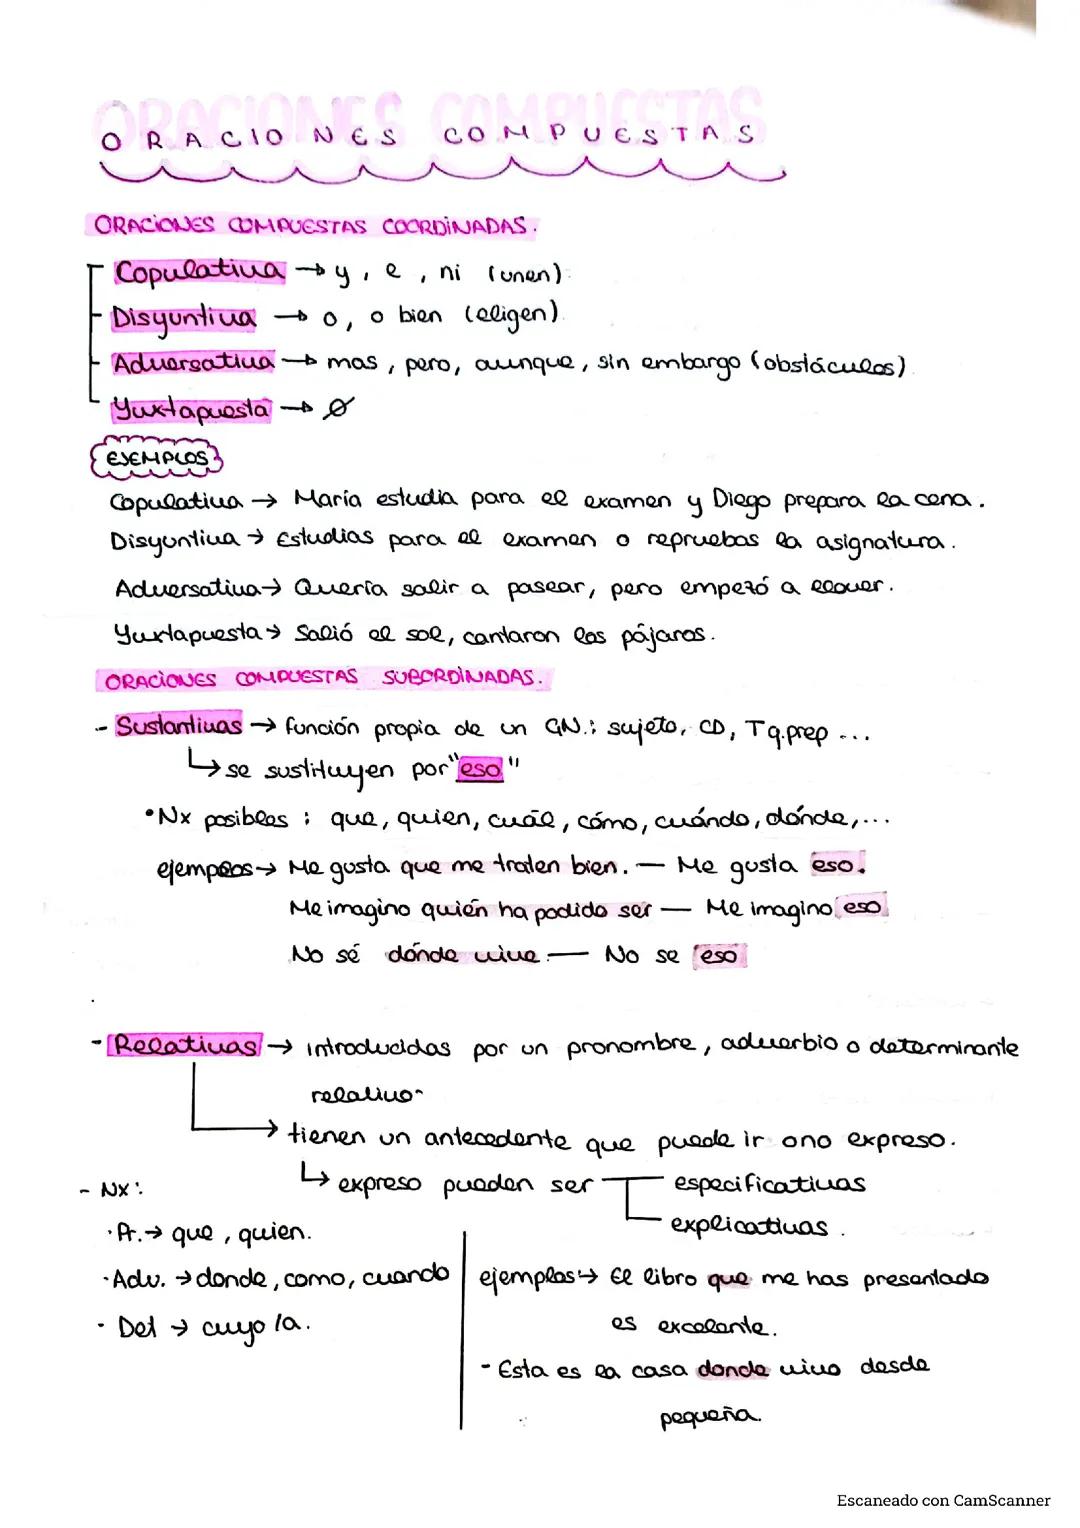 ORACIONES COMPUESTAS
ORACIONES COMPUESTAS COORDINADAS.
Copulativa → y, e, ni (unen)
Disyuntiva → o, o bien (eligen)
Adversativa → mas, pero, aunque, sin embargo (obstáculos)
Yuxtapuesta → ∅
EJEMPLOS
Copulativa → María estudia para el examen y Diego prepara la cena.
Disyuntiva → Estudias para el examen o repruebas la asignatura.
Adversativa → Quería salir a pasear, pero empezó a llover.
Yuxtapuesta → Salió el sol, cantaron los pájaros.
ORACIONES COMPUESTAS SUBORDINADAS.
- Sustantivas → función propia de un GN.: sujeto, CD, Tq.prep ...
↳ se sustituyen por "eso"
• Nx posibles : que, quien, cuál, cómo, cuándo, dónde,...
ejemplos → Me gusta que me traten bien. — Me gusta eso.
Me imagino quién ha podido ser — Me imagino eso
No sé dónde vive — No se eso
- Relativas → introducidas por un pronombre, adverbio o determinante
relativo
→ tienen un antecedente que puede ir o no expreso.
↳ expreso pueden ser especificativas
explicativas.
- Nx:
· Pr. → que, quien.
· Adv. → donde, como, cuando
· Det → cuyo/a.
ejemplos → El libro que me has presentado
es excelente.
- Esta es la casa donde vivo desde
pequeña.
Escaneado con CamScanner